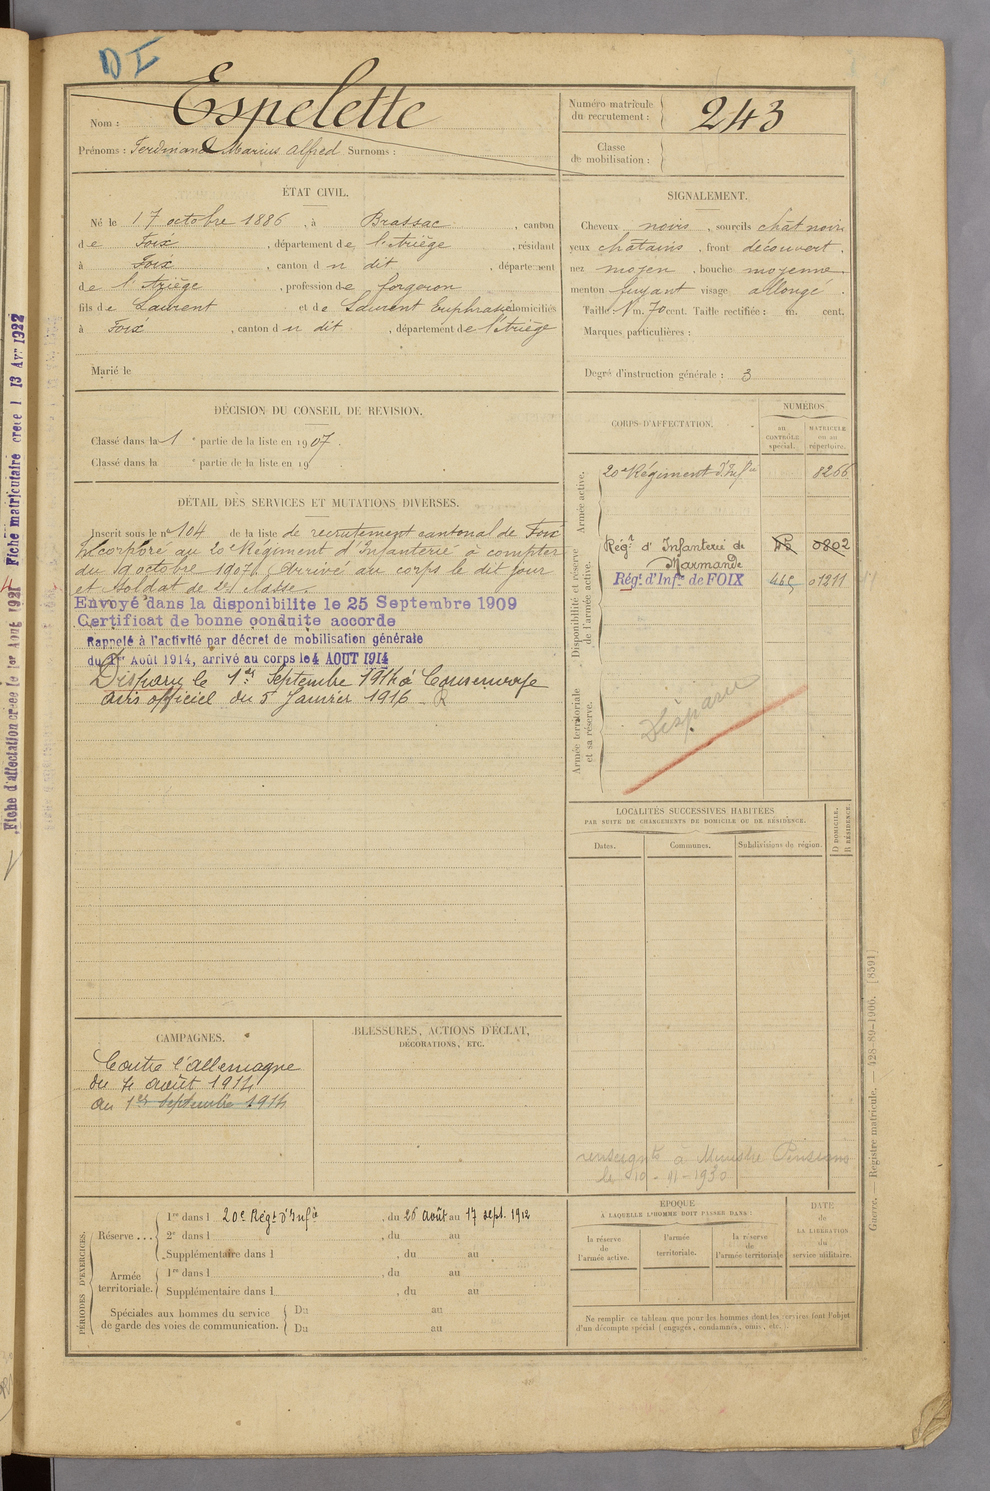 DI
Nom : Espelette
Prénoms : Ferdinand Marius Alfred Surnoms :
Numéro matricule
du recrutement : 243
Classe
de mobilisation :
ÉTAT CIVIL.
Né le 17 octobre 1886, à Brassac, canton
de Foix, département de l'Ariège, résidant
à Foix, canton du dit, département
de l'Ariège, profession de forgeron
fils de Laurent et de Laurent Euphrasie domiciliés
à Foix, canton du dit, département de l'Ariège
Marié le
SIGNALEMENT.
Cheveux noirs, sourcils chat noirs
yeux châtains, front découvert,
nez moyen, bouche moyenne
menton fuyant visage allongé.
Taille : 1 m. 70 cent. Taille rectifiée : m. cent.
Marques particulières :
Degré d'instruction générale : 3
DÉCISION DU CONSEIL DE REVISION.
Classé dans la 1 e partie de la liste en 1907.
Classé dans la e partie de la liste en 19
DÉTAIL DES SERVICES ET MUTATIONS DIVERSES.
Inscrit sous le n° 104 de la liste de recrutement cantonal de Foix
Incorporé au 20e Régiment d'Infanterie à compter
du 9 octobre 1907, Arrivé au corps le dit jour
et soldat de 2e classe.
Envoyé dans la disponibilite le 25 Septembre 1909
Certificat de bonne conduite accorde
Rappelé à l'activité par décret de mobilisation générale
du 1er Août 1914, arrivé au corps le 4 AOUT 1914
Disparu le 1er Septembre 1914 à Consenvoye
avis officiel du 5 Janvier 1916 - R
CORPS D'AFFECTATION.
NUMÉROS
au
CONTRÔLE
spécial.
MATRICULE
ou au
répertoire.
Armée active.
20e Régiment d'Infie 8266
Disponibilité et réserve
de l'armée active.
Régt d'Infanterie de 0802
Marmande
Régt d'Infie de FOIX 01211
Armée territoriale
et sa réserve.
Disparu
LOCALITÉS SUCCESSIVES HABITÉES
PAR SUITE DE CHANGEMENTS DE DOMICILE OU DE RÉSIDENCE.
Dates.
Communes.
Subdivisions de région.
D DOMICILE.
R RÉSIDENCE.
renseignts à Ministre Pensions
le 10-11-1930
CAMPAGNES.
Contre l'allemagne
du 4 août 1914
au 1er septembre 1914
BLESSURES, ACTIONS D'ÉCLAT,
DÉCORATIONS, ETC.
PÉRIODES D'EXERCICES.
Réserve ...
1re dans l 20e Régt d'Infie, du 26 Août au 17 sept. 1912
2e dans l , du au
Supplémentaire dans l , du au
Armée
territoriale.
1re dans l , du au
Supplémentaire dans l , du au
Spéciales aux hommes du service
de garde des voies de communication.
Du au
Du au
ÉPOQUE
À LAQUELLE L'HOMME DOIT PASSER DANS :
la réserve
de
l'armée active.
l'armée
territoriale.
la réserve
de
l'armée territoriale
DATE
de
LA LIBÉRATION
du
service militaire.
Ne remplir ce tableau que pour les hommes dont les services font l'objet
d'un décompte spécial (engagés, condamnés, omis, etc.).
Guerre. — Registre matricule. — 428-89-1906. [8591]
Fiche d'affectation créée le 1er Août 1921 Fiche matriculaire creee l 13 Avr 1922